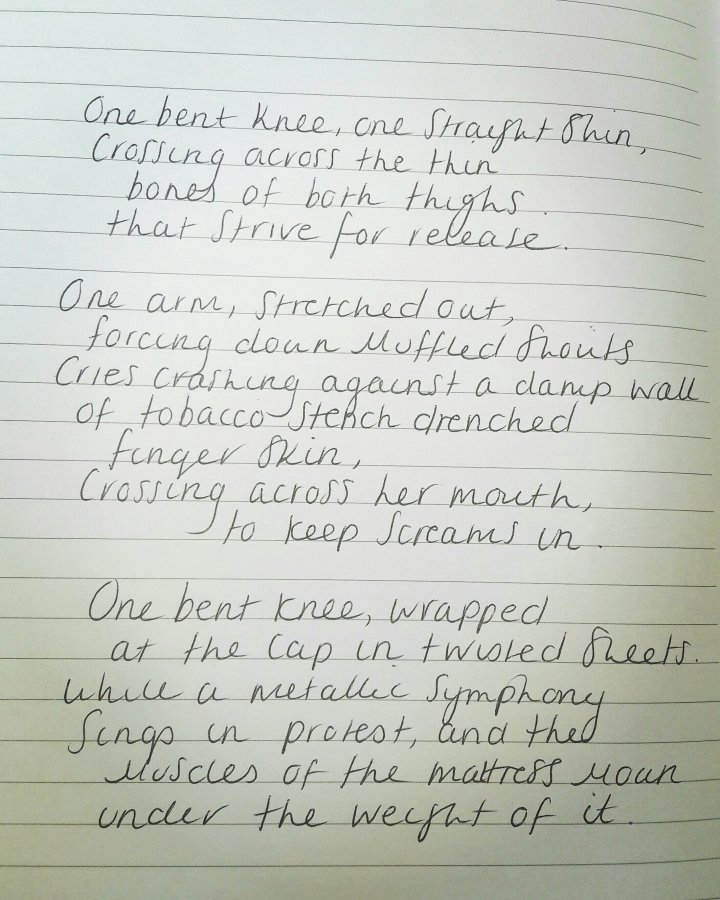 One bent knee, one straight shin,
Crossing across the thin
bones of both thighs.
that strive for release.
One arm, stretched out,
forcing down muffled shouts
Cries crashing against a damp wall
of tobacco-stench drenched
finger skin,
Crossing across her mouth,
to keep screams in.
One bent knee, wrapped
at the cap in twisted sheets.
while a metallic symphony
Sings in protest, and the
muscles of the mattress moan
under the weight of it.